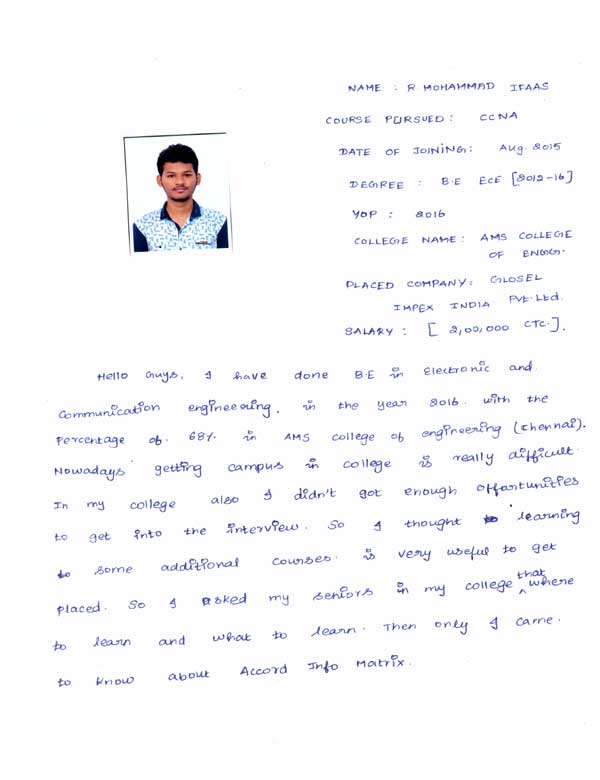 NAME : R. MOHAMMAD IFAAS
COURSE PURSUED : CCNA
DATE OF JOINING : Aug. 2015
DEGREE : B.E ECE [2012-16]
YOP : 2016
COLLEGE NAME : AMS COLLEGE
OF ENGG.
PLACED COMPANY : GLOSEL
IMPEX INDIA Pvt. Ltd.
SALARY : [ 2,00,000 CTC. ].
Hello Guys, I have done B.E in Electronic and
Communication engineering. in the year 2016. with the
Percentage of. 68%. in AMS college of engineering (Chennai).
Nowadays getting campus in college is really difficult.
In my college also I didn't got enough offartunities
to get into the interview. So I thought learning
to some additional courses. is very useful to get
placed. So I asked my seniors in my college that where
to learn and what to learn. Then only I came.
to know about Accord Info Matrix.